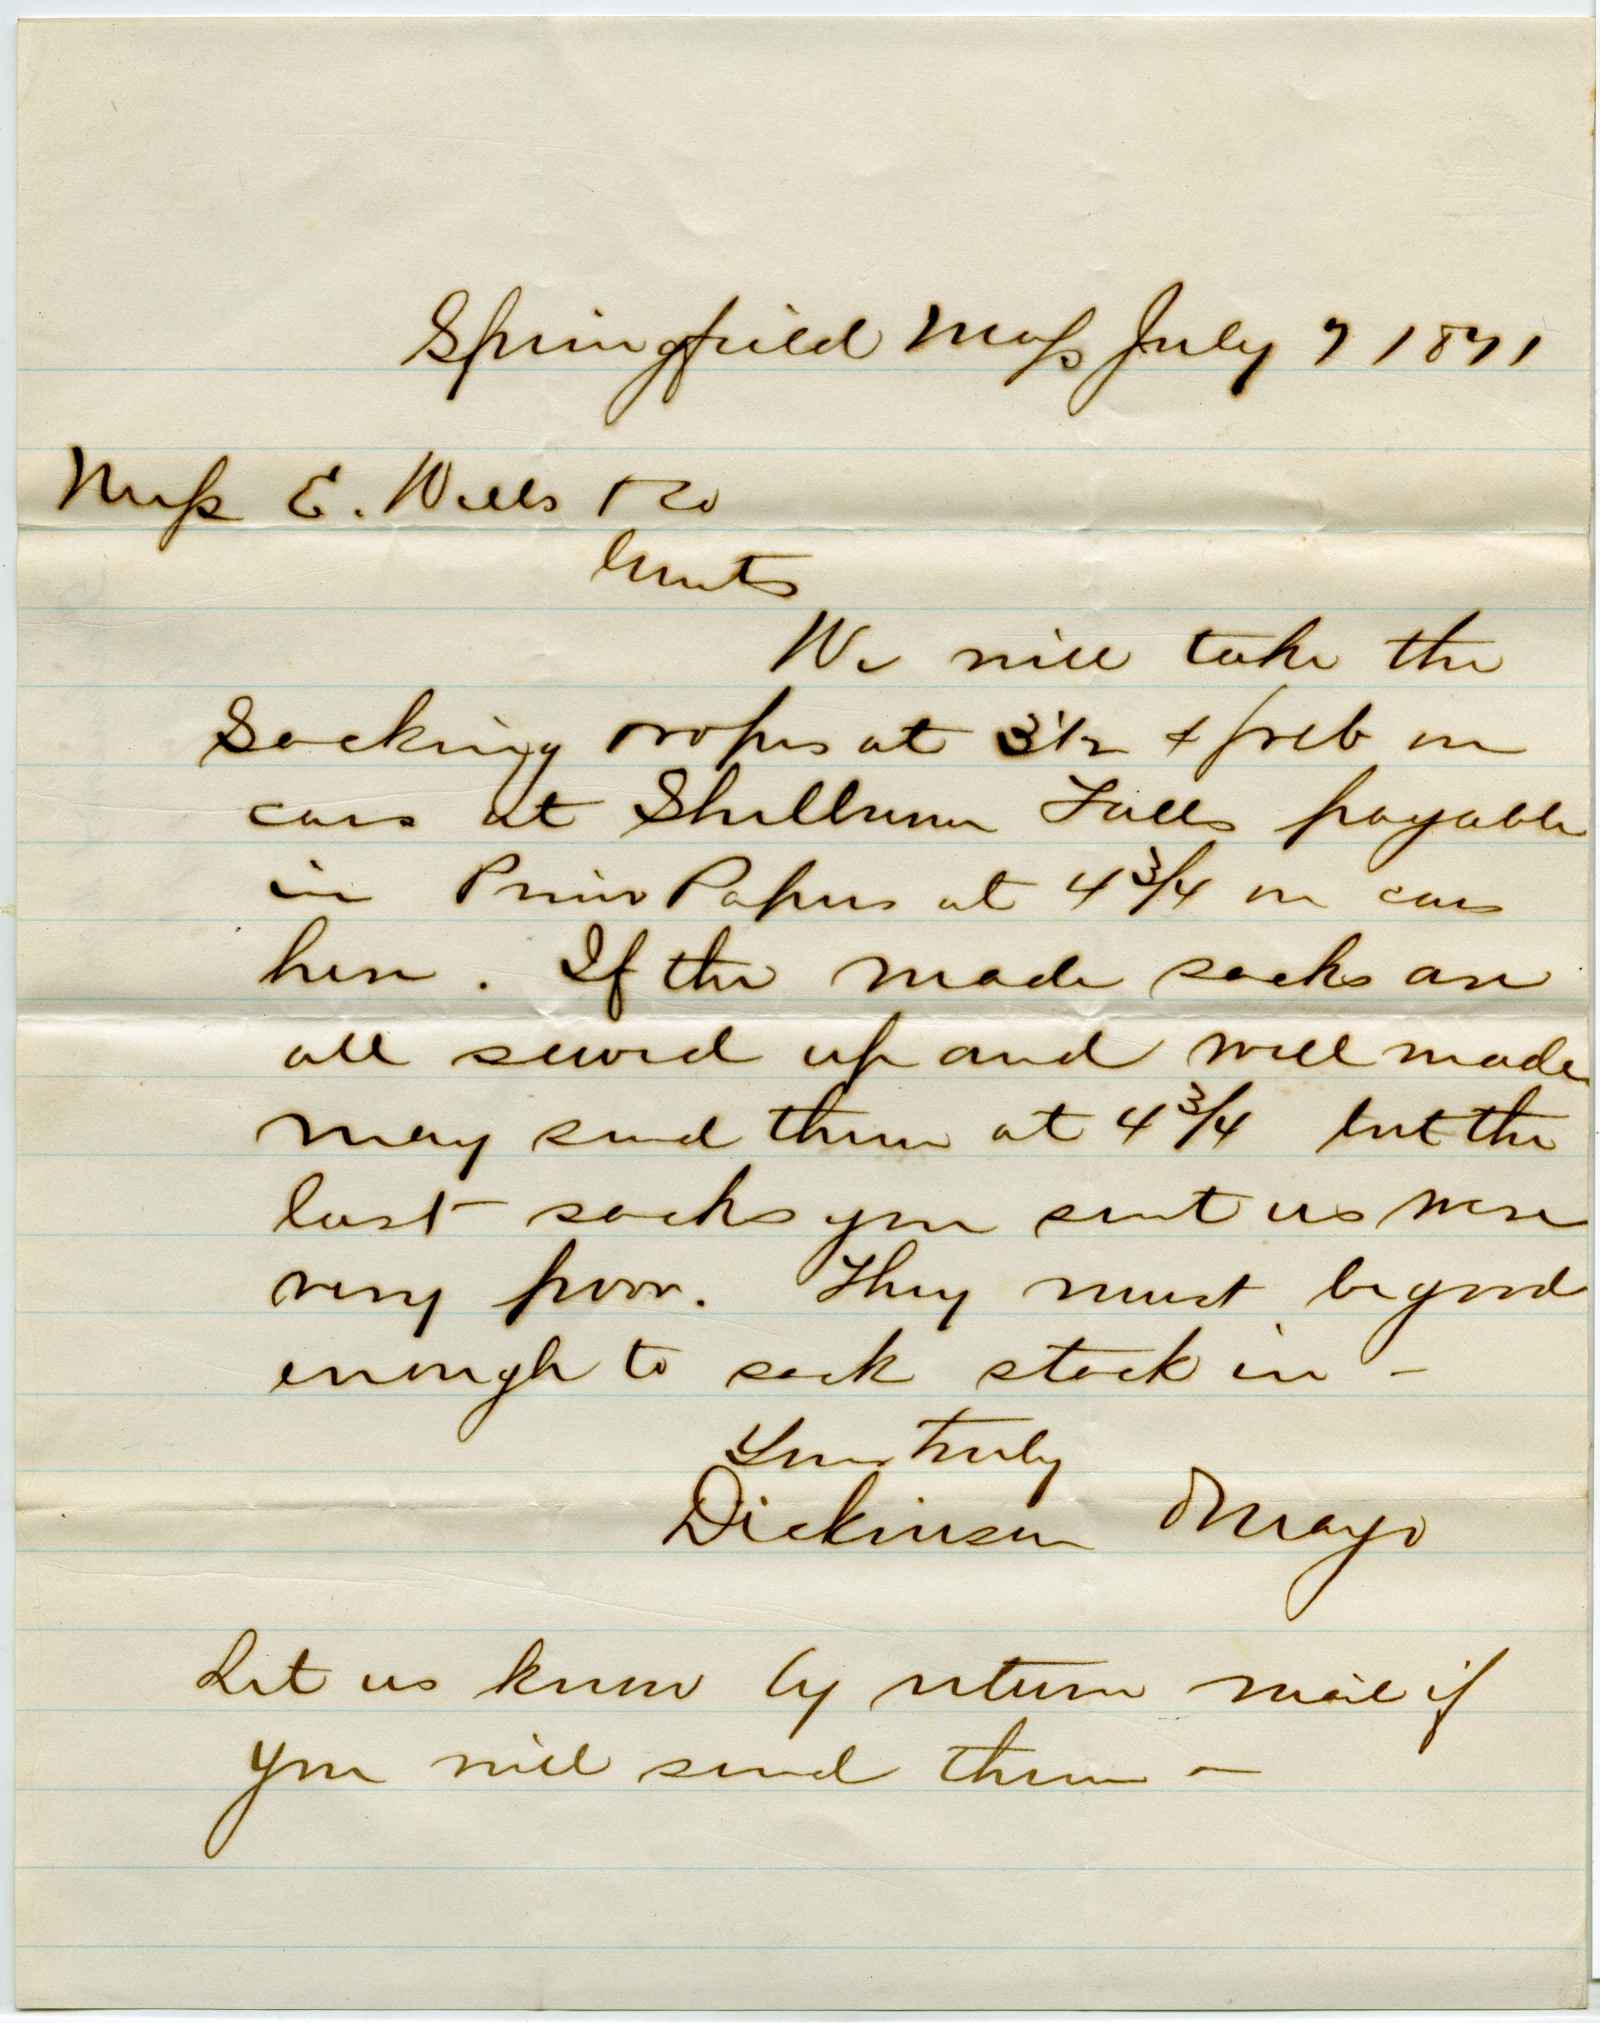 Springfield Mass July 7 1871
Mess E. Wells & Co
Gents
We will take the
Sacking & ropes at 3 1/2 & free on
cars at Shelburne Falls payable
in Papers at 4 3/4 on cars
here. If the made sacks are
all sewed up and well made
may send them at 4 3/4 but the
last sacks you sent us were
very poor. They must be good
enough to sack stock in -
Yours truly
Dickinson & Mayo
Let us know by return mail if
you will send them -